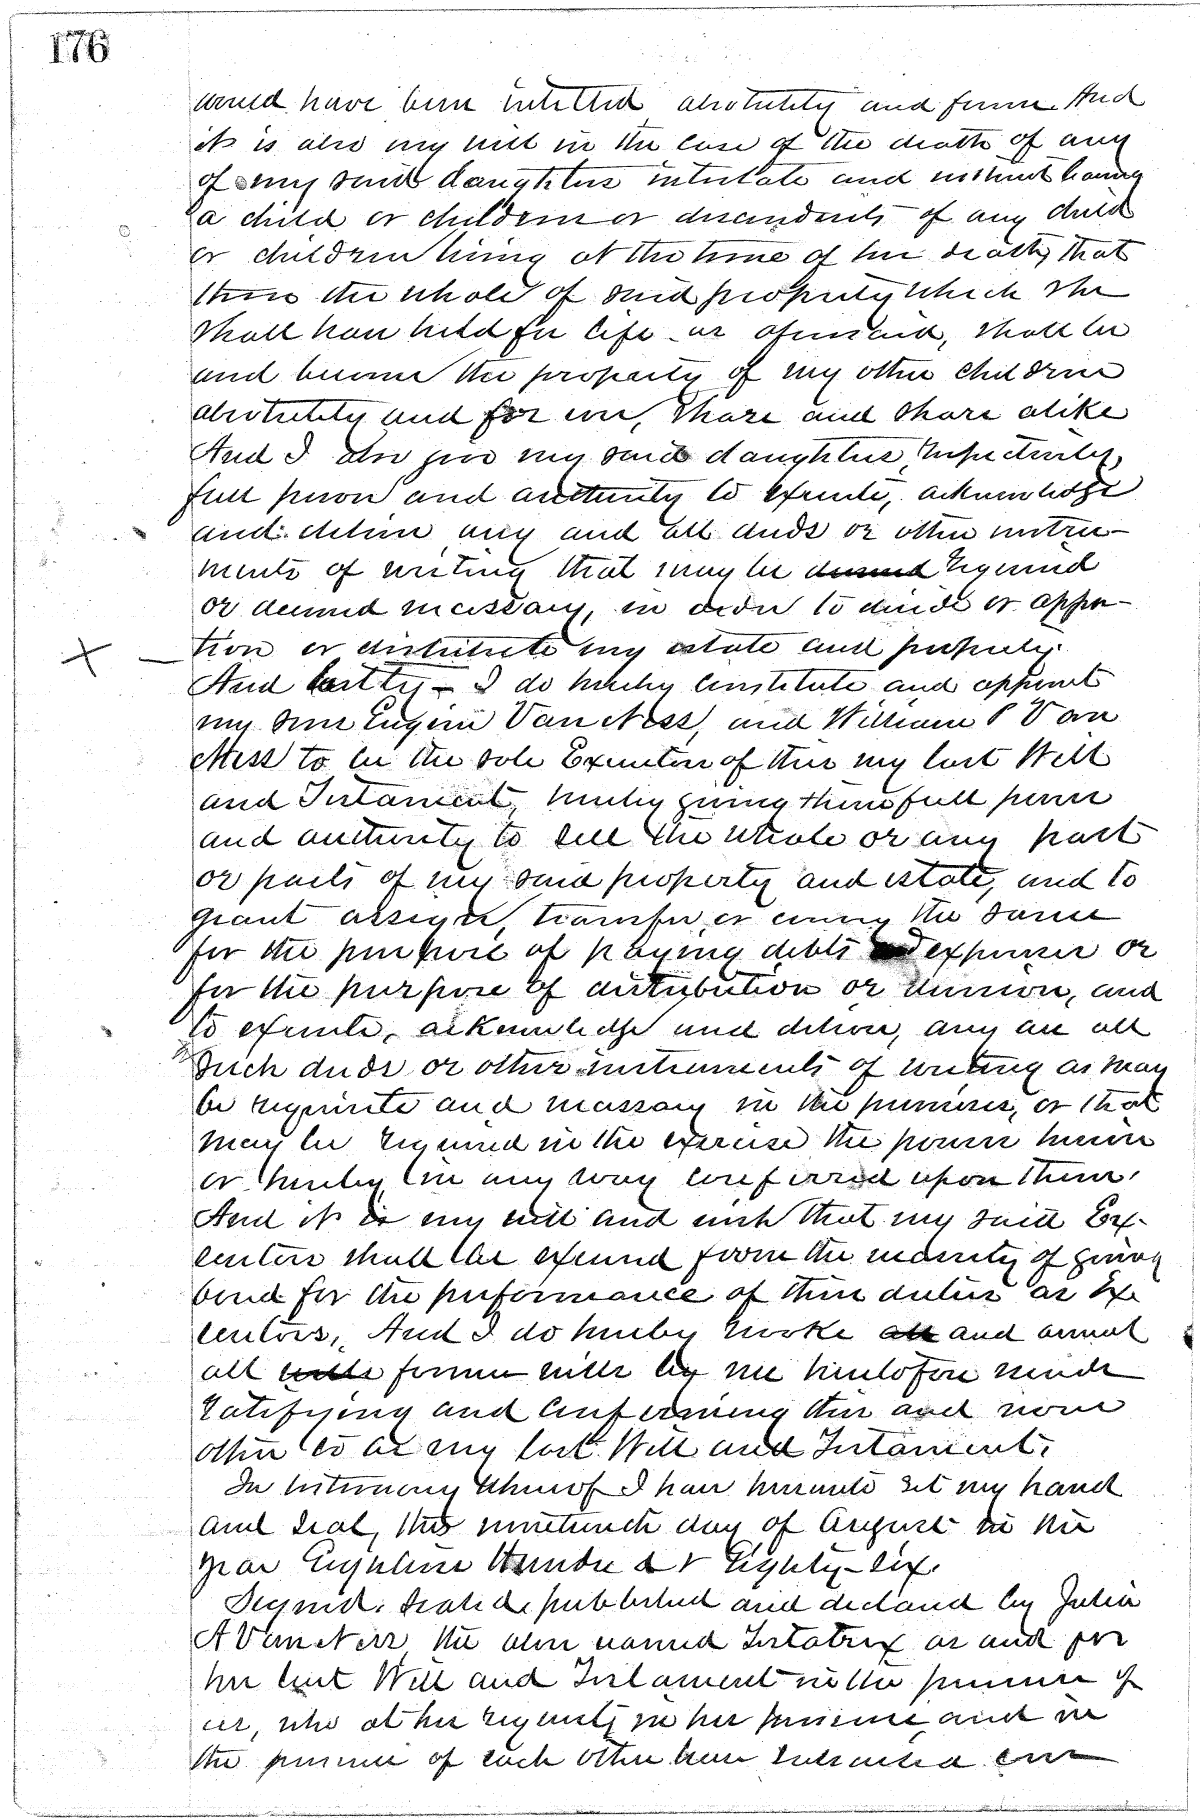 176
would have been intitled absolutely and forever And
it is also my will in the case of the death of any
of my said daughters intestate and without having
a child or children or descendents of any child
or children living at the time of her death, that
then the whole of said property which she
shall have held for life as aforesaid, shall be
and become the property of my other children
absolutely and for ever, share and share alike
And I also give my said daughters, respectively,
full power and authority to execute, acknowledge
and deliver any and all deeds or other instru-
ments of writing that may be deemed required
or deemed necessary, in order to divide or appor-
tion or distribute my estate and property.
And lastly – I do hereby constitute and appoint
my sons Eugene Van Ness, and William P Van
Ness to be the sole Executors of this my last Will
and Testament, hereby giving them full power
and authority to sell the whole or any part
or parts of my said property and estate, and to
grant assign, transfer or convey the same
for the purpose of paying debts and expenses or
for the purpose of distribution or division, and
to execute, acknowledge and deliver, any an all
such deeds or other instruments of writing as may
be requisite and necessary in the premises, or that
may be required in the exercise the power herein
or hereby in any way conferred upon them.
And it is my will and wish that my said Ex-
ecutors shall be excused from the necessity of giving
bond for the performance of their duties as Ex
ecutors, And I do hereby revoke all and annul
all wills former wills by me heretofore made
ratifying and confirming this and none
other to be my last Will and Testament.
In testimony whereof I have hereunto set my hand
and seal, this nineteenth day of August in the
year Eighteen Hundred & Eighty-Six.
Signed, sealed, published and declared by Julia
A Van Ness, the above named Testatrix as and for
her last Will and Testament in the presence of
us, who at her request, in her presence, and in
the presence of each other have subscribed our